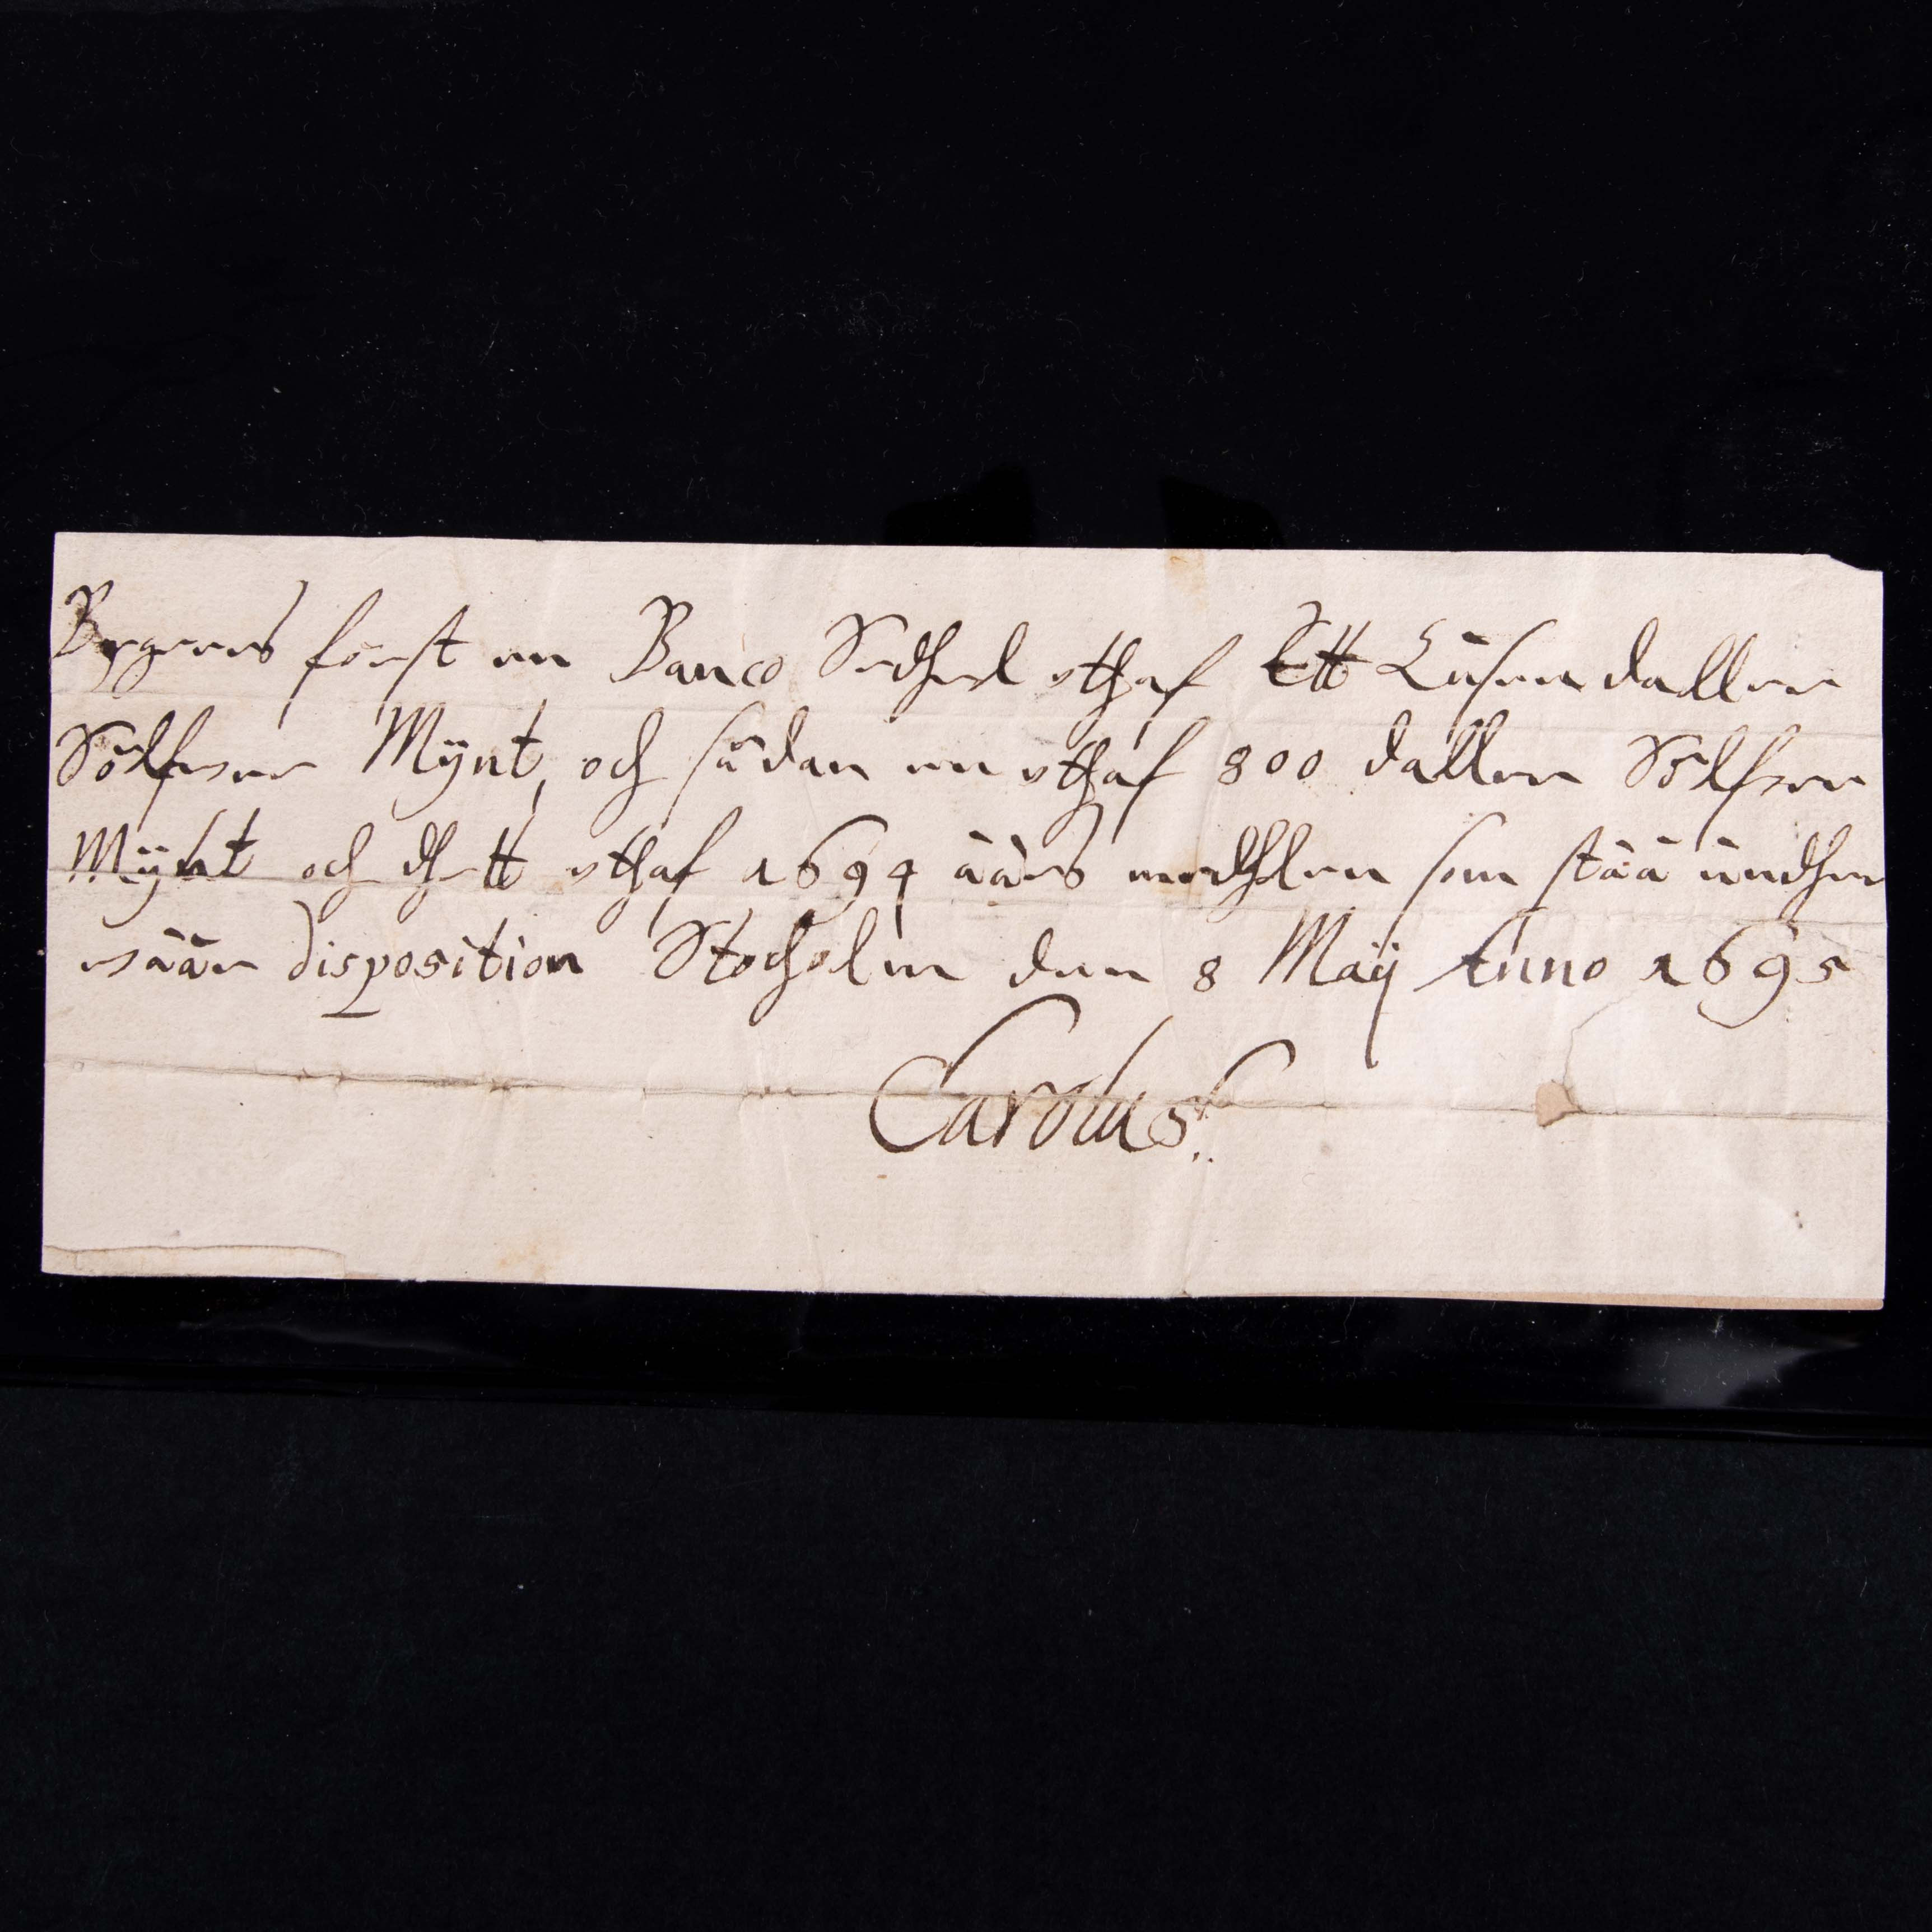 Begeres först en Banco Sedhel vthaf Ett Tusen daller
Sölfwer Mÿnt, och sädan en vthaf 800 daller Sölfwer
Mÿnt och dhett vthaf 1694 åårs medhlen som ståå undher
wåår disposition Stocholm den 8 Maÿ Anno 1695
Carolus